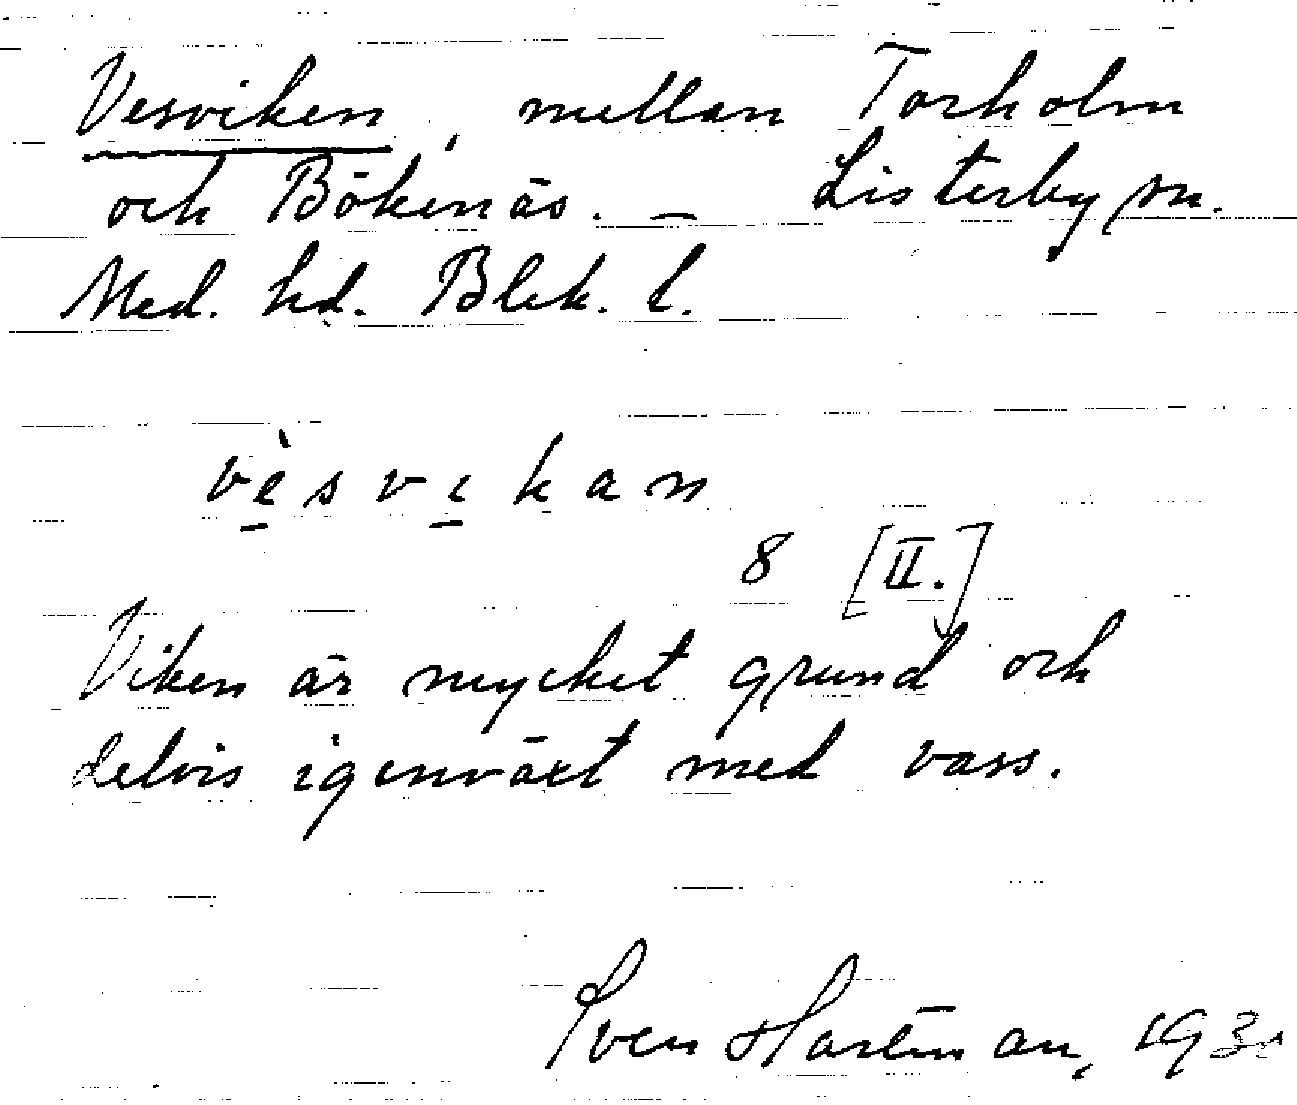 Vesviken, mellan Torholm
och Bökenäs. – Listerby sn.
Med. hd. Blek. l.
vè̱svi̱kan
8 [II.]
Viken är mycket grund och
delvis igenväxt med vass.
Sven Hartman,